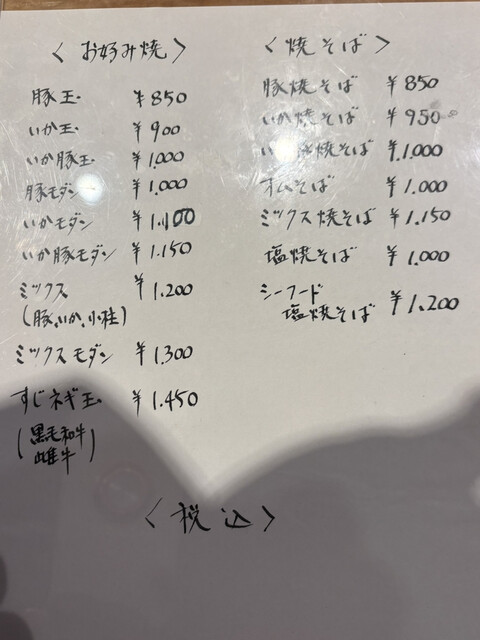 〈お好み焼〉
豚玉 ¥850
いか玉 ¥900
いか豚玉 ¥1.000
豚モダン ¥1.000
いかモダン ¥1.100
いか豚モダン ¥1.150
ミックス ¥1.200
(豚、いか、小柱)
ミックスモダン ¥1.300
すじネギ玉 ¥1.450
(黒毛和牛
雌牛)
〈焼そば〉
豚焼そば ¥850
いか焼そば ¥950
い 焼そば ¥1.000
オムそば ¥1.000
ミックス焼そば ¥1.150
塩焼そば ¥1.000
シーフード
塩焼そば ¥1.200
〈税込〉